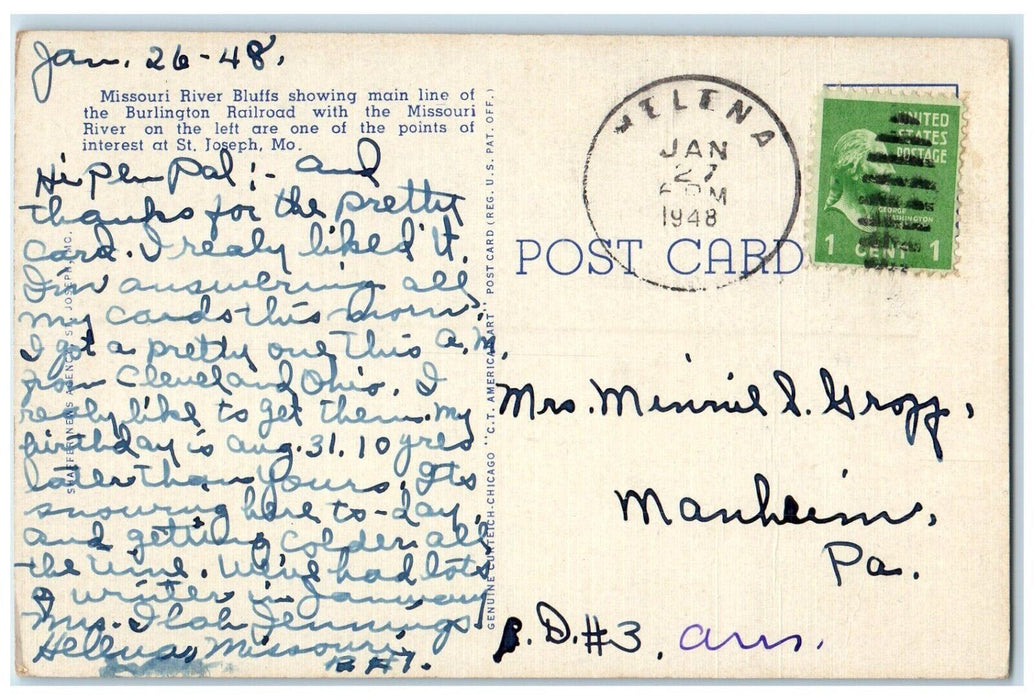 Jan. 26-48.
Missouri River Bluffs showing main line of
the Burlington Railroad with the Missouri
River on the left are one of the points of
interest at St. Joseph, Mo.
Hi Pen Pal:- and
thanks for the pretty
card. I realy liked it.
I'm answering all
my cards this morn.
I got a pretty one this A.M.
from Cleveland Ohio. I
realy like to get them. My
birthday is Aug. 31. 10 yrs
later than yours. Its
snowing here to-day,
and getting colder all
the time. We've had lots
of winter in January
Mrs. Ilah Jennings
Helena, Missouri
R#1.
SHAFFER NEWS AGENCY, ST. JOSEPH, MO.
GENUINE CURTEICH-CHICAGO "C.T. AMERICAN ART" POST CARD (REG. U.S. PAT. OFF.)
HELENA
JAN
27
PM
1948
UNITED
STATES
POSTAGE
GEORGE
WASHINGTON
1 CENT 1
POST CARD
Mrs. Minnie S. Gropp,
Manheim,
Pa.
R.D.#3. ans.